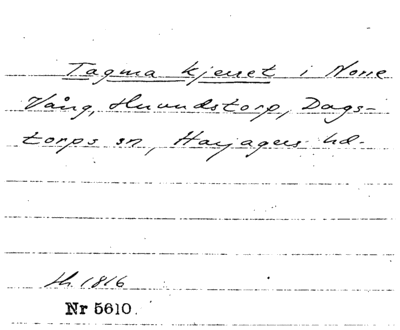 Tagma kjerret i Norre
Vång, Huvudstorp, Dags-
torps sn, Harjagers hd.
Nr 5610.